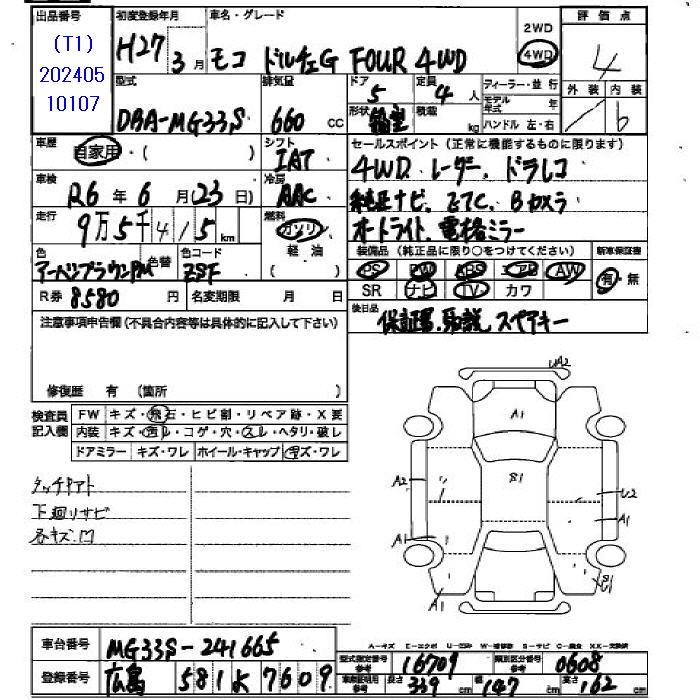 出品番号 初度登録年月 車名・グレード 2WD 評価点
(T1) H27年 3月 モコ ドルチェG FOUR 4WD 4WD 4
202405
10107
型式 排気量 ドア 定員 ディーラー・並行 外装 内装
DBA-MG33S 660 CC 5 4人 モデル年式 年 b
形状 箱型 積載 kg ハンドル 左・右
車歴 自家用・( ) シフト IAT セールスポイント(正常に機能するものに限ります)
4WD. レーダー. ドラレコ
車検 R6年 6月(23日) 冷房 AAC 純正ナビ. ETC. Bカメラ
走行 9万5千415km 燃料 ガソリン オートライト. 電格ミラー
軽・油
色 アーバンブラウンPM 色替 色コード ZSF ( ) 装備品(純正品に限り○をつけてください) 新車保証書
PS PW ABS エアB AW 有・無
R券 8580円 名変期限 月 日 SR ナビ TV カワ
注意事項申告欄(不具合内容等は具体的に記入して下さい) 後日品 保証書. 取説. スペアキー
修復歴 有 (箇所 )
検査員記入欄 FW キズ・飛石・ヒビ割・リペア跡・X要
内装 キズ・汚レ・コゲ・穴・スレ・ヘタリ・破レ
ドアミラー キズ・ワレ ホイール・キャップ キズ・ワレ
タッチアト
下廻リサビ
各キズ.凹
UA2
A1
A2 S1 U2
A1
A1
A1 S1
車台番号 MG33S-241665
A-キズ E-エクボ U-凹ミ W-補修跡 S-サビ C-腐食 XX-交換済
登録番号 広島 581 K 7609
型式指定番号 参考 16709 類別区分番号 参考 0608
車庫証明用 参考 長さ 339cm 幅 147cm 高さ 162cm